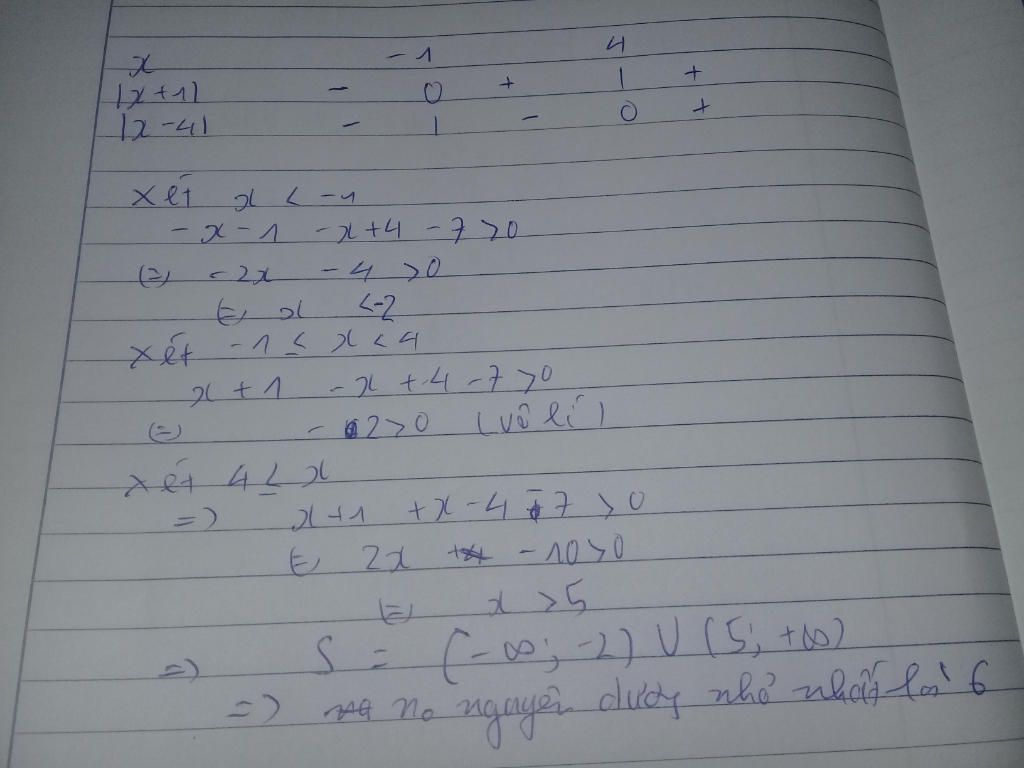 x -1 4
|x+1| - 0 + | +
|x-4| - | - 0 +
xét x < -1
-x-1 -x+4 -7 >0
(=) -2x -4 >0
(=) x <-2
xét -1 ≤ x < 4
x+1 -x+4-7 >0
(=) -2>0 (vô lí)
xét 4 ≤ x
=) x+1 +x-4 -7 >0
(=) 2x -10>0
(=) x >5
=) S = (-∞; -2) U (5; +∞)
=) no nguyên dương nhỏ nhất là 6